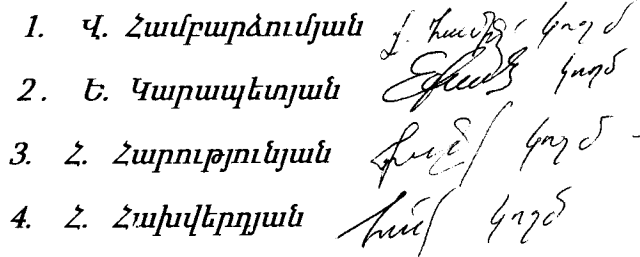 1. Վ. Համբարձումյան կողմ
2. Ե. Կարապետյան կողմ
3. Հ. Հարությունյան կողմ
4. Հ. Հախվերդյան կողմ